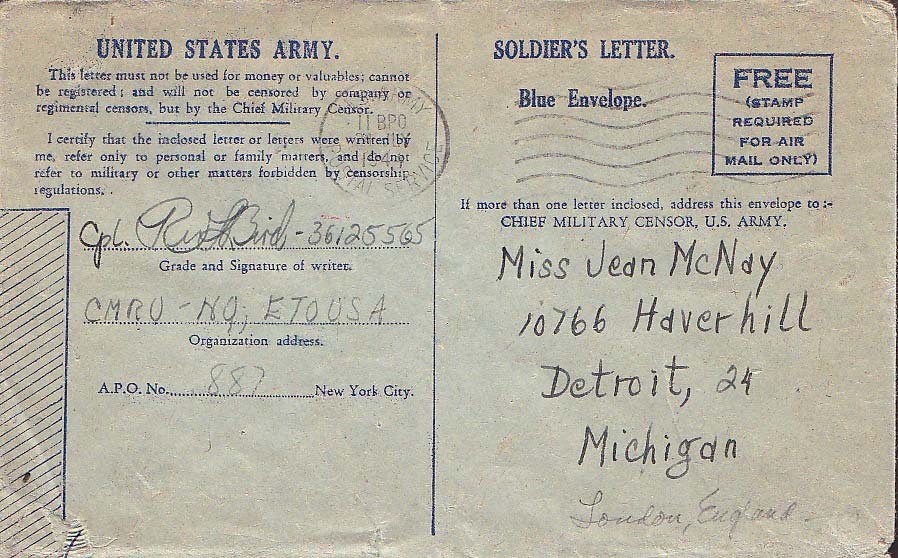 UNITED STATES ARMY.
This letter must not be used for money or valuables; cannot
be registered; and will not be censored by company or
regimental censors, but by the Chief Military Censor.
I certify that the inclosed letter or letters were written by
me, refer only to personal or family matters, and do not
refer to military or other matters forbidden by censorship
regulations.
Cpl. Bird - 36125565
Grade and Signature of writer.
CMRU - HQ, ETOUSA
Organization address.
A.P.O. No. 887 New York City.
BPO
POSTAL SERVICE
SOLDIER'S LETTER.
Blue Envelope.
FREE
(STAMP
REQUIRED
FOR AIR
MAIL ONLY)
If more than one letter inclosed, address this envelope to :-
CHIEF MILITARY CENSOR, U.S. ARMY.
Miss Jean McNay
10766 Haverhill
Detroit, 24
Michigan
London, England